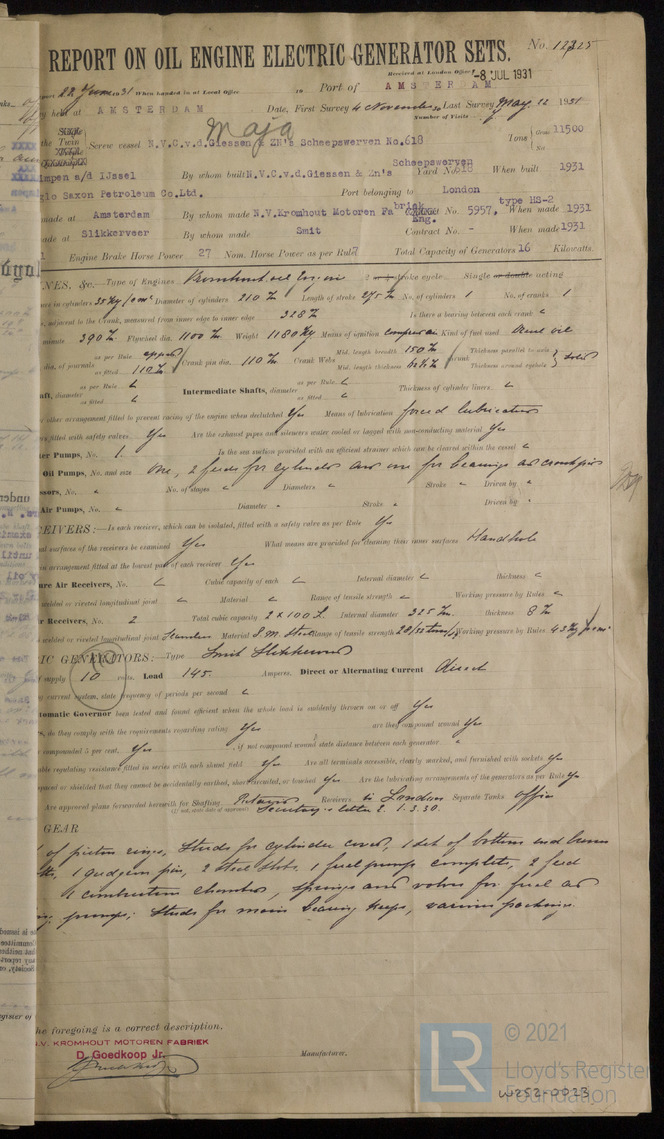 REPORT ON OIL ENGINE ELECTRIC GENERATOR SETS. No. 12325
Received at London Office -8 JUL 1931
When handed in at Local Office 10 Port of AMSTERDAM
held at AMSTERDAM Date, First Survey 4 November 30 Last Survey May 12 1931
Number of Visits
Maja
the Twin Screw vessel N.V.C.v.d.Giessen & ZN's Scheepswerven No.618 Tons Gross 11500 Net
impen a/d IJssel By whom built N.V.C.v.d.Giessen & Zn's Scheepswerven Yard No. 618 When built 1931
glo Saxon Petroleum Co.Ltd. Port belonging to London
made at Amsterdam By whom made N.V.Kromhout Motoren Fabriek Eng. No. 5957, type HS-2 When made 1931
ade at Slikkerveer By whom made Smit Contract No. - When made 1931
1 Engine Brake Horse Power 27 Nom. Horse Power as per Rule 7 Total Capacity of Generators 16 Kilowatts.
NES, &c.—Type of Engines Kromhout oil Engine 2 or 4 stroke cycle Single or double acting
ure in cylinders 35 Kg/cm² Diameter of cylinders 210 Length of stroke 275 No. of cylinders 1 No. of cranks 1
s, adjacent to the Crank, measured from inner edge to inner edge 328 Is there a bearing between each crank
minute 390 Flywheel dia. 1100 Weight 1180 Kg Means of ignition compression Kind of fuel used Diesel oil
dia. of journals as per Rule approved as fitted 110 Crank pin dia. 110 Crank Webs Mid. length breadth 150 Mid. length thickness shrunk Thickness parallel to axis Thickness around eyehole solid
aft, diameter as per Rule as fitted Intermediate Shafts, diameter as per Rule as fitted Thickness of cylinder liners
other arrangement fitted to prevent racing of the engine when declutched Yes Means of lubrication forced lubrication
rs fitted with safety valves Yes Are the exhaust pipes and silencers water cooled or lagged with non-conducting material Yes
er Pumps, No. 1. Is the sea suction provided with an efficient strainer which can be cleared within the vessel
Oil Pumps, No. and size One, 2 feeds for cylinder and one for bearings and crankpin
ssors, No. No. of stages Diameters Stroke Driven by
Air Pumps, No. Diameter Stroke Driven by
CEIVERS:—Is each receiver, which can be isolated, fitted with a safety valve as per Rule Yes
al surfaces of the receivers be examined Yes What means are provided for cleaning their inner surfaces Handhole
in arrangement fitted at the lowest part of each receiver Yes
ure Air Receivers, No. Cubic capacity of each Internal diameter thickness
welded or riveted longitudinal joint Material Range of tensile strength Working pressure by Rules
r Receivers, No. 2 Total cubic capacity 2 x 100 L. Internal diameter 325 thickness 8
welded or riveted longitudinal joint Seamless Material S.M. Steel Range of tensile strength 28/32 tons Working pressure by Rules 43 Kg per cm²
IC GENERATORS:—Type Smit Slikkerveer
f supply 110 volts. Load 145 Amperes. Direct or Alternating Current Direct
g current system, state frequency of periods per second
tomatic Governor been tested and found efficient when the whole load is suddenly thrown on or off Yes
s, do they comply with the requirements regarding rating Yes are they compound wound Yes
r compounded 5 per cent. Yes, if not compound wound state distance between each generator
able regulating resistance fitted in series with each shunt field Yes Are all terminals accessible, clearly marked, and furnished with sockets Yes
spaced or shielded that they cannot be accidentally earthed, short circuited, or touched Yes Are the lubricating arrangements of the generators as per Rule Yes
Are approved plans forwarded herewith for Shafting Returned Receivers to London Separate Tanks office
(If not, state date of approval) Secretary's letter 2. 1.3.30.
GEAR
of piston rings, studs for cylinder cover, 1 set of bottom end brasses
1 gudgeon pin, 2 steel slots, 1 fuel pump complete, 2 feed
1 combustion chamber, springs and valves for fuel and
pumps; studs for main bearing keeps, various packings.
he foregoing is a correct description.
N.V. KROMHOUT MOTOREN FABRIEK
D. Goedkoop Jr.
Manufacturer.
LR © 2021
Lloyd's Register
Foundation
W252-0023